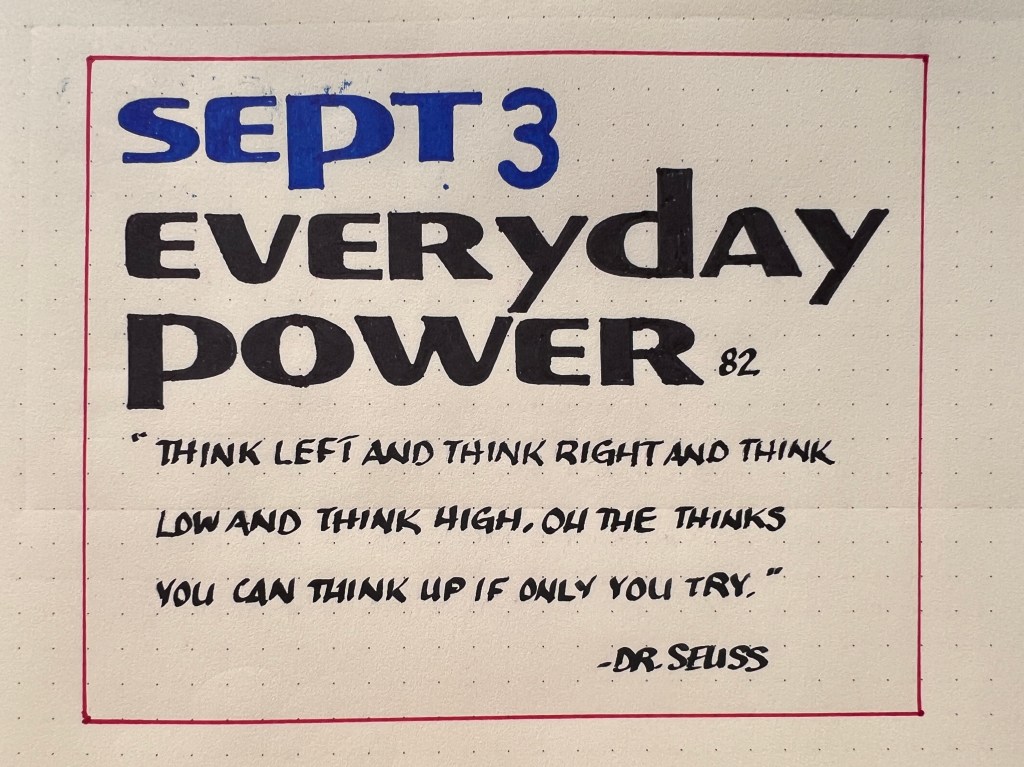 SEPT 3
EVERYDAY
POWER 82
"THINK LEFT AND THINK RIGHT AND THINK
LOW AND THINK HIGH. OH THE THINKS
YOU CAN THINK UP IF ONLY YOU TRY."
-DR. SEUSS